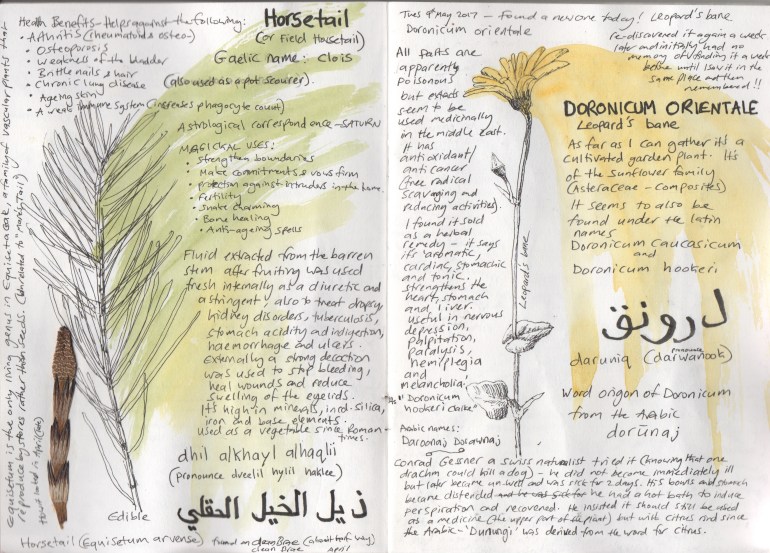 Health Benefits - Helps against the following:
• Arthritis (rheumatoid & osteo-
• Osteoporosis
• Weakness of the bladder
• Brittle nails & hair
• Chronic lung disease
• Ageing skin
• A weak immune system (increases phagocyte count)
Equisetum is the only living genus in Equisetaceae, a family of vascular plants that
reproduce by spores rather than seeds. (Unrelated to "Mare's Tail")
Horsetail
(or Field Horsetail)
Gaelic name: Clois
(also used as a pot scourer).
Astrological correspondence - SATURN
MAGICKAL USES:
• Strengthen boundaries
• Make commitments & vows firm
• Protection against intruders in the home.
• Fertility
• Snake charming
• Bone healing
• Anti-ageing spells
Fluid extracted from the barren
stem after fruiting was used
fresh internally as a diuretic and
astringent, also to treat dropsy,
kidney disorders, tuberculosis,
stomach acidity and indigestion,
haemorrhage and ulcers.
Externally a strong decoction
was used to stop bleeding,
heal wounds and reduce
swelling of the eyelids.
It's high in minerals, incl. silica,
iron and base elements.
Used as a vegetable since Roman
times.
dhil alkhayl alhaqlii
(pronounce dveelil hylil haklee)
ذيل الخيل الحقلي
Edible
Horsetail (Equisetum arvense) found on
April
Tues 9th May 2017 - found a new one today! Leopard's bane
Doronicum orientale
re-discovered it again a week
later and initially had no
memory of finding it a week
before until I saw it in the
same place and then
remembered!!
All parts are
apparently
poisonous
but extracts
seem to be
used medicinally
in the middle East.
It has
antioxidant/
anti cancer
(free radical
scavaging and
reducing activities).
I found it sold
as a herbal
remedy - it says
its 'aromatic,
cardiac, stomachic
and tonic.
Strengthens the
heart, stomach
and liver.
useful in nervous
depression,
palpitation,
paralysis,
hemiplegia
and
melancholia,
"Doronicum
hookeri
Arabic names:
Daroonaj Dorawnaj
Leopard's bane
DORONICUM ORIENTALE
Leopard's bane
As far as I can gather it's a
cultivated garden plant. It's
of the sunflower family
(Asteraceae - composites)
It seems to also be
found under the latin
names
Doronicum Caucasicum
and
Doronicum hookeri
درونق
pronounce
daruniq (darwanook)
Word origon of Doronicum
from the Arabic
dorūnaj
Conrad Gessner a Swiss naturalist tried it (knowing that one
drachm could kill a dog) - he did not become immediately ill
but later became unwell and was sick for 2 days. His bowels and stomach
became distended and he was sick for he had a hot bath to induce
perspiration and recovered. He insisted it should still be used
as a medicine (the upper part of the plant) but with citrus rind since
the Arabic - 'Durungi' was derived from the word for citrus.